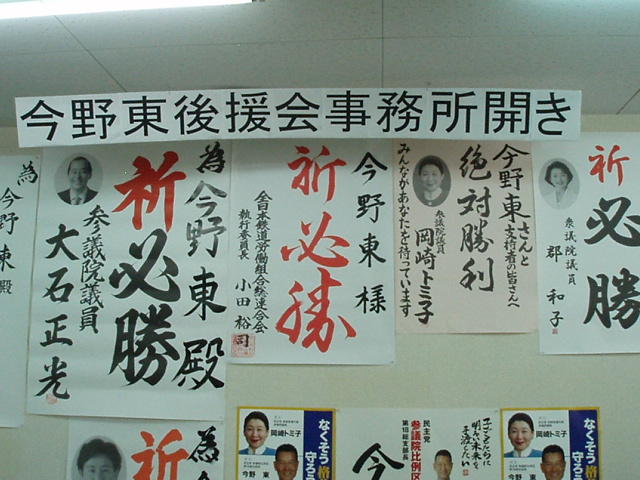 今野東後援会事務所開き
為
今野東殿
為今野東殿
祈
必勝
参議院議員
大石正光
今野東様
祈
必勝
全日本鉄道労働組合総連合会
執行委員長 小田裕司
今野東さんと
支持者の皆さんへ
絶対勝利
衆議院議員
岡崎トミ子
みんながあなたを待っています
祈
必勝
衆議院議員
郡和子
為今
祈
なくそう格
守ろう
岡崎トミ子
今野東
子どもたちに
明るい未来を
手渡したい
民主党
参議院比例区
第18総支部長
今
なくそう格
守ろう
岡崎トミ子
今野東